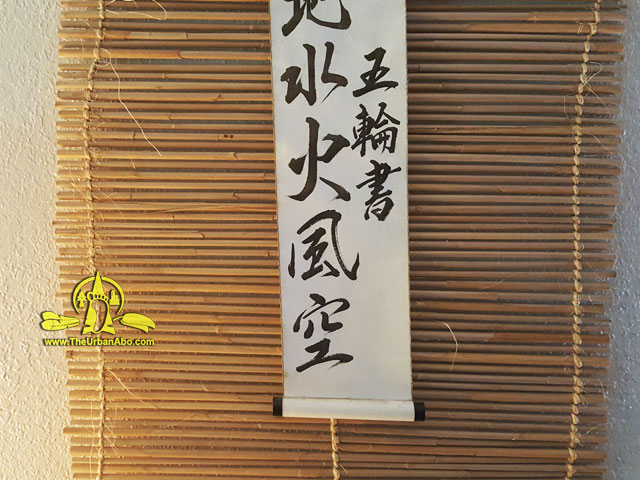 五輪書
地水火風空
www.TheUrbanAbo.com